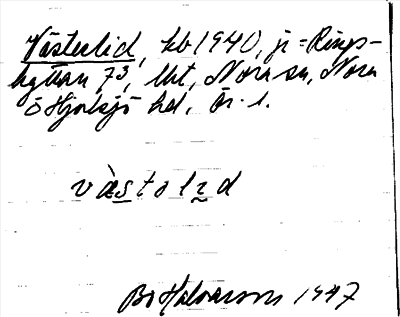 Västerlid, kb 1940, jr = Rings-
hyttan 73, Uht, Nora sn, Nora
o Hjulsjö hd, Ör. l.
västolid
Bo Halvarson 1947